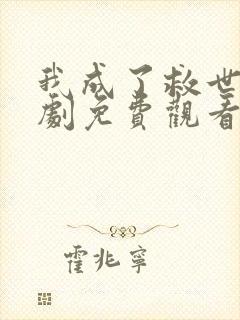 我成了救世
劇免費觀看
霍兆寧